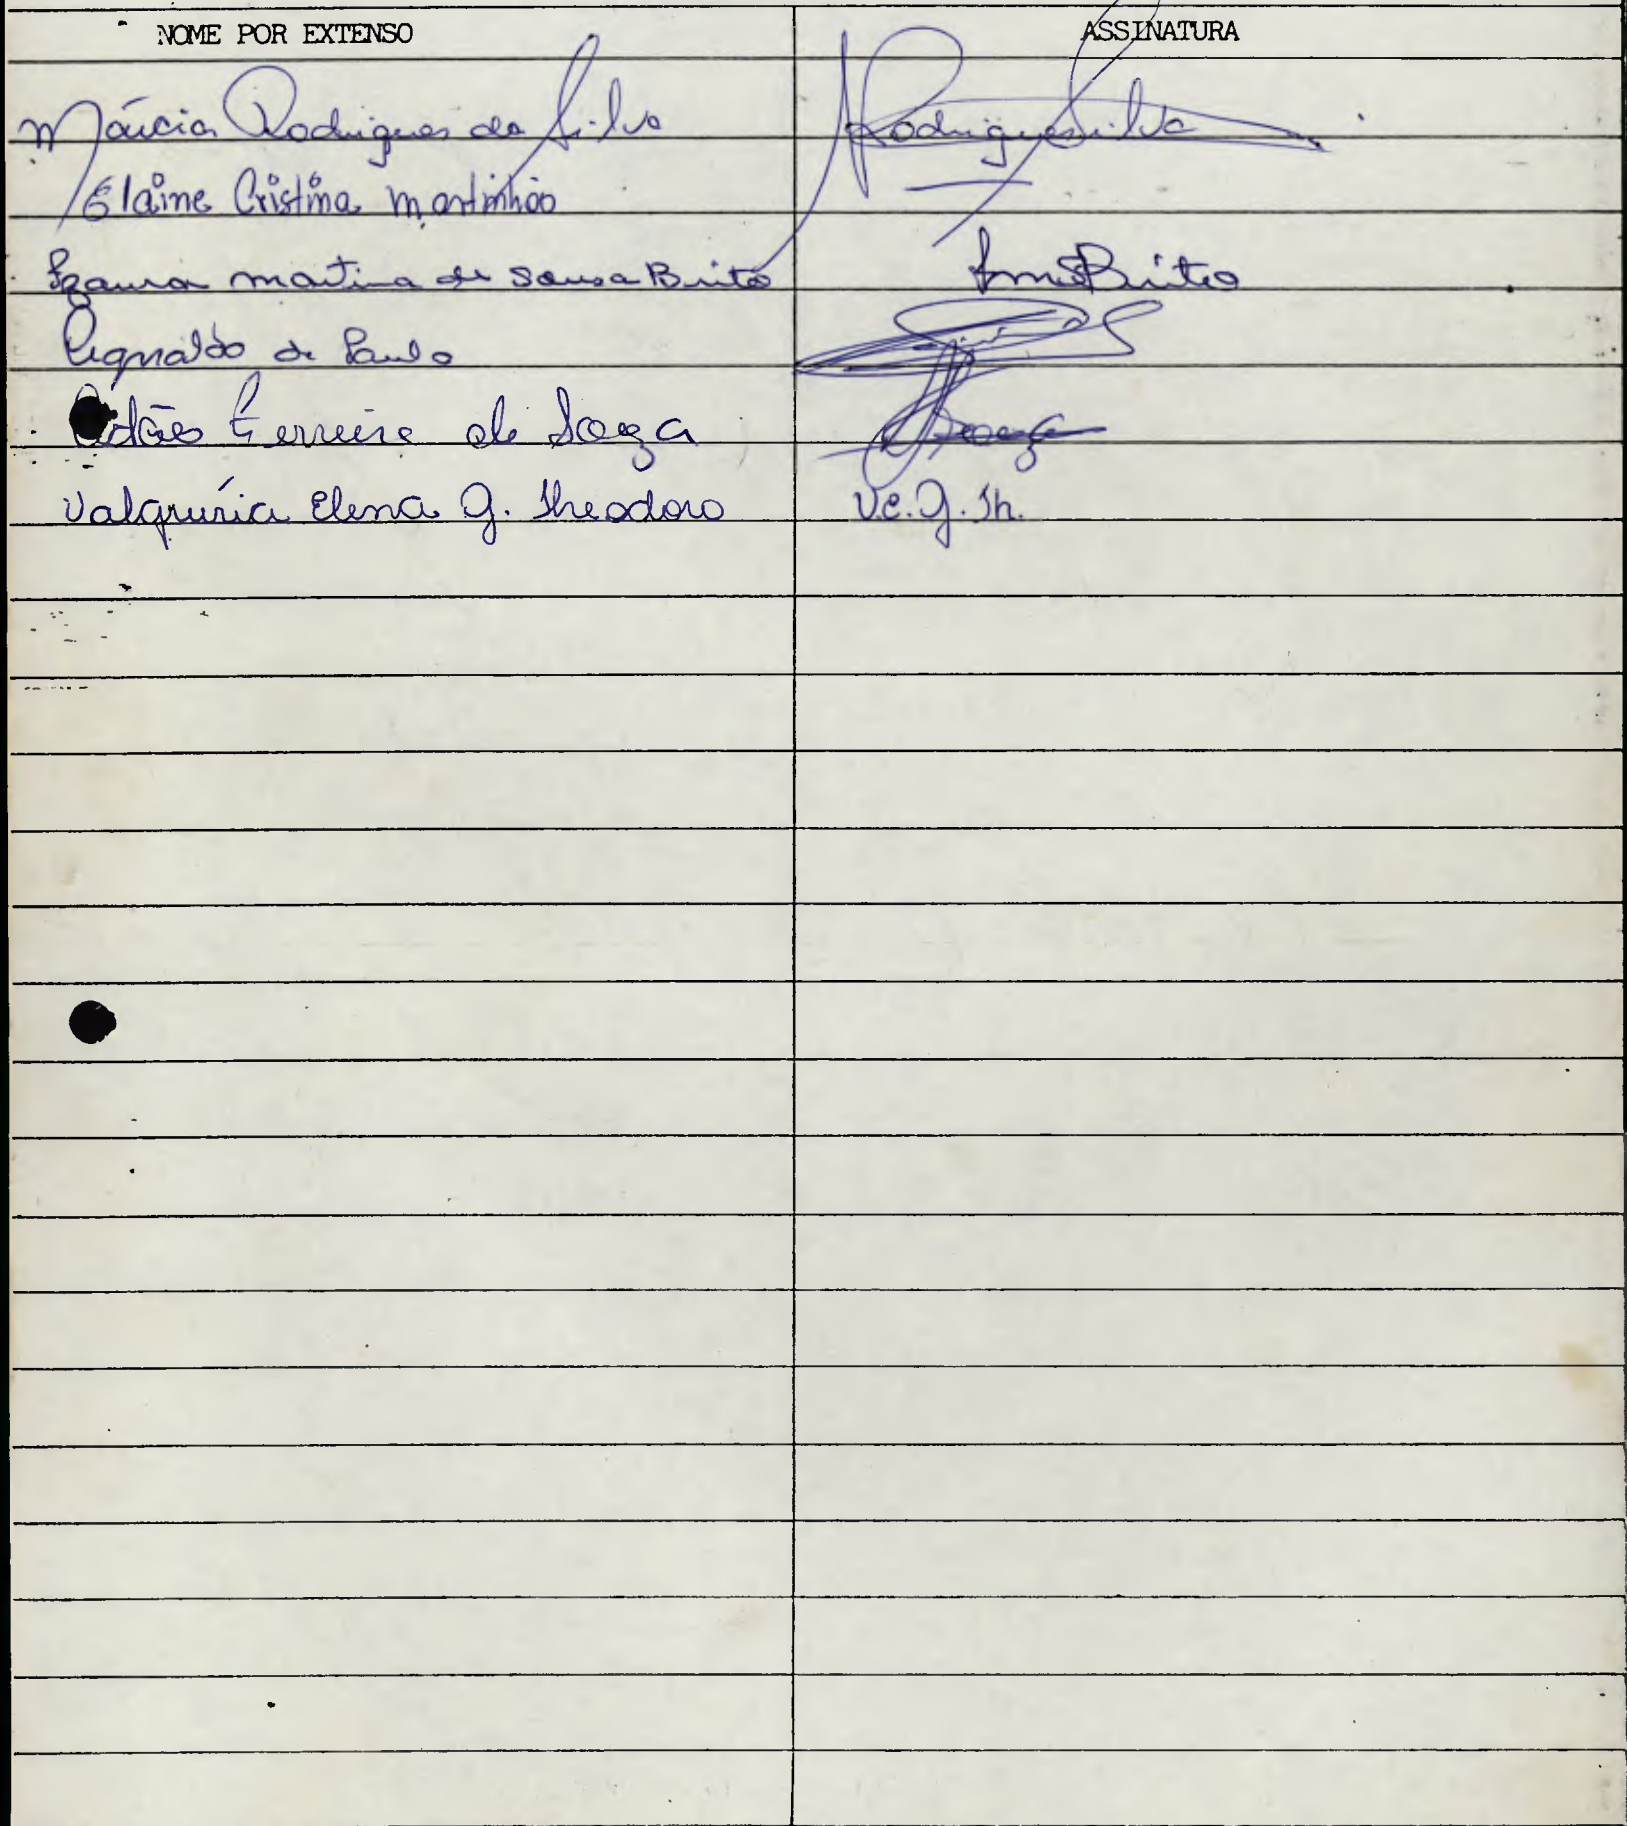 NOME POR EXTENSO ASSINATURA
Márcia Rodrigues da Silva Rodrigues Silva
Elaine Cristina Martinhão
Izaura Martina de Sousa Brito ImSBrito
Reginaldo de Paulo
Adão Ferreira de Souza Souza
Valquíria Elena G. Theodoro V.E.G.Th.